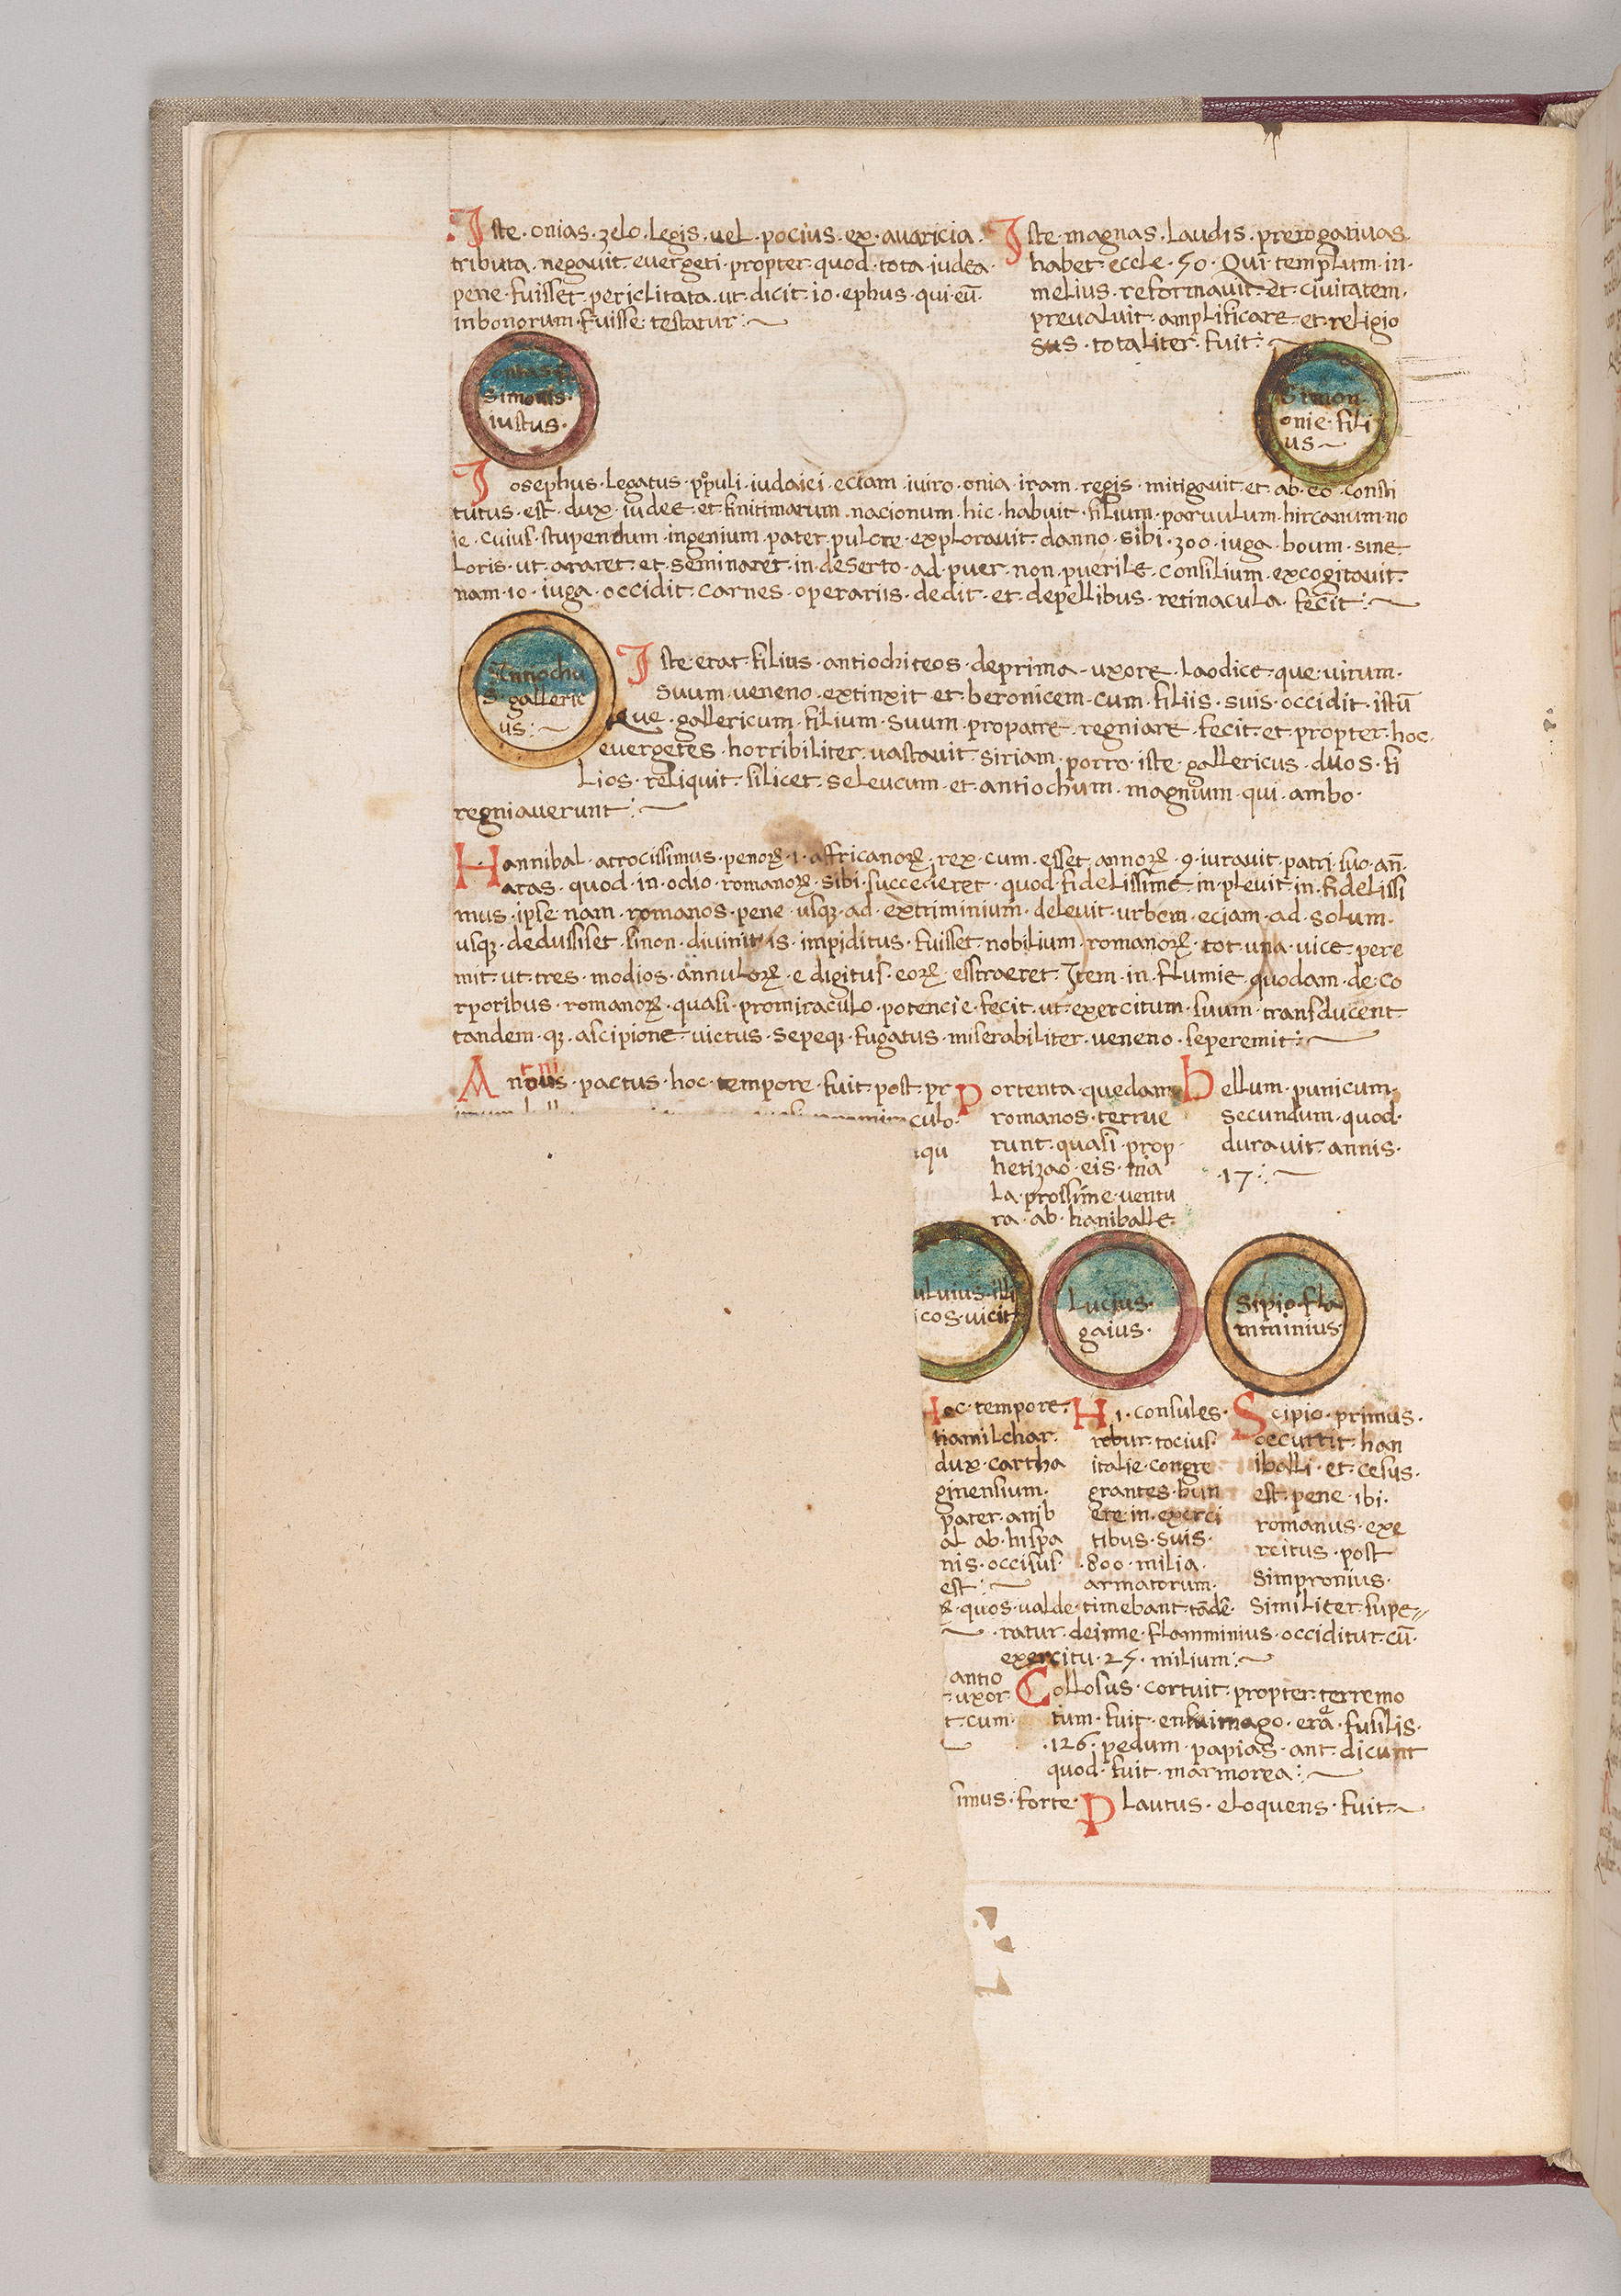 Iste · onias · zelo · legis · vel · pocius · ex · avaricia ·
tributa · negavit · evergeti · propter · quod · tota · iudea ·
pene · fuisset · periclitata · ut · dicit · io · ephus · qui · eū ·
inbonorum · fuisse · testatur :~
Iste · magnas · laudis · prerogativas ·
habet · eccle · 50 · Qui · templum · in ·
melius · reformavit · et · civitatem ·
prevaluit · amplificare · et · religio
sus · totaliter · fuit :
onias
Simonis ·
iustus ·
Simon ·
onie · fili
us ~
Iosephus · legatus · populi · iudaici · eciam · iuiro · onia · iram · regis · mitigavit · et · ab · eo · consti
tutus · est · dux · iudee · et · finitimarum · nacionum · hic · habuit · filium · parvulum · hircanum · no
ie · cuius · stupendum · ingenium · pater · pulcre · exploravit · danno · sibi · 300 · iuga · boum · sine
loris · ut · araret · et · seminaret · in · deserto · ad · puer · non · puerile · consilium · excogitavit ·
nam · 10 · iuga · occidit · carnes · operariis · dedit · et · depellibus · retinacula · fecit :~
Antiochu
s · galleric
us :~
Iste erat · filius · antiochiteos · deprima · uxore · laodice · que · virum ·
suum · veneno · extinxit · et · beronicem · cum · filiis · suis · occidit · istū
que · gallericum · filium · suum · propatre · regniare · fecit · et · propter · hoc ·
evergetes · horribiliter · vastavit · siriam · porro · iste · gallericus · duos · fi
lios · reliquit · silicet · seleucum · et · antiochum · magnum · qui · ambo ·
regniaverunt :~
Hannibal · atrocissimus · penoꝝ · i · affricanoꝝ · rex · cum · esset · annoꝝ · 9 · iuravit · patri · suo · an̄ ·
aras · quod · in · odio · romanoꝝ · sibi · succederet · quod · fidelissime · in · plevit · in · fidelissi
mus · ipse · nam · romanos · pene · usqꝫ · ad · extriminium · delevit · urbem · eciam · ad · solum ·
usqꝫ · dedussiset · sinon · divinitis · impiditus · fuisset · nobilium · romanoꝝ · tot · una · vice · pere
mit · ut · tres · modios · annuloꝝ · e digitus · eoꝝ · esstraeret · Item · in · flumie · quodam · de · co
rporibus · romanoꝝ · quasi · promiraculo · potencie · fecit · ut · exercitum · suum · transducent
tandem · qꝫ · ascipione · victus · sepeqꝫ · fugatus · miserabiliter · veneno · seperemit :~
pactus · hoc · tempore · fuit · post · pr
culo ·
iqu
Portenta · quedam ·
romanos · terrue
runt · quasi · prop ·
hetizao · eis · ma
la · prossime · ventu
ra · ab · haniballe ·
Bellum · punicum ·
secundum · quod ·
duravit · annis ·
· 17 :~
ulvius · illi
icos · vicit
Lucius ·
gaius ·
Sipio · fla
mminius ·
Hoc · tempore ·
hamilchar ·
dux · cartha
ginensium ·
pater · anib
al ab · hispa
nis · occisus ·
est :~
Hi · consules ·
robur · tocius ·
italie · congre
grantes · hun
ere · in · exerci
tibus · suis ·
· 800 · milia ·
armatorum ·
ꝝ · quos · valde · timebant · tādē ·
Scipio · primus ·
occurrit · han
iballi · et · cesus ·
est · pene · ibi ·
romanus · exe
rcitus · post
Simpronius ·
Similiter · supe
ratur · deinne · flamminius · occiditur · cū ·
exercitu · 25 · milium :~
antio
uxor ·
t · cum ·
Collosus · corruit · propter · terremo
tum · fuit · enim · imago · erea · fusilis ·
· 126 · pedum · papias · ant · dicunt
quod · fuit · marmorea :~
simus · forte ·
Plautus · eloquens · fuit :~